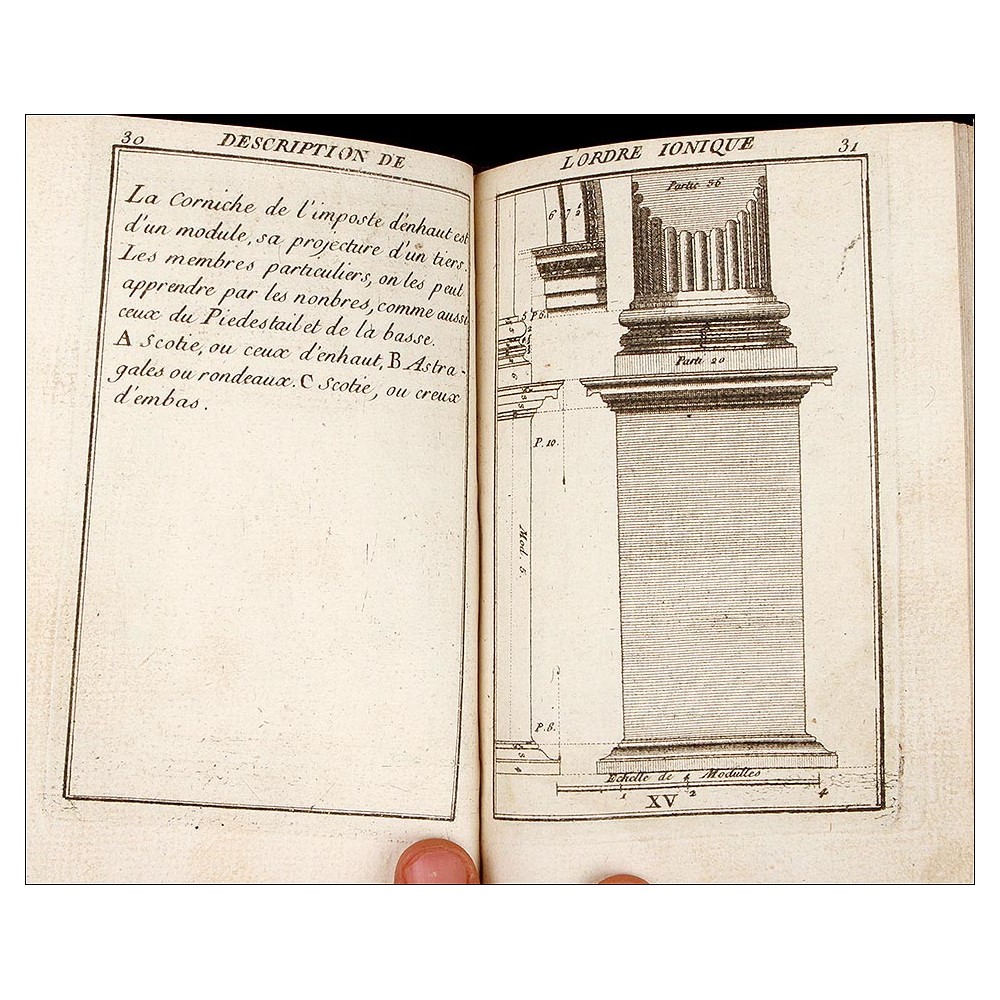 30
DESCRIPTION DE
La Corniche de l'imposte d'enhaut est
d'un module, sa projecture d'un tiers.
Les membres particuliers, on les peut
apprendre par les nonbres, comme aussi
ceux du Piedestail et de la basse.
A Scotie, ou ceux d'enhaut, B Astra-
gales ou rondeaux. C Scotie, ou creux
d'embas.
L'ORDRE IONIQUE
31
Partie 36
6 7 ½
5 P 6.
Parti 20
P. 10.
Mod. 5.
P. 8.
Echelle de 4 Modulles
1 2 4
XV